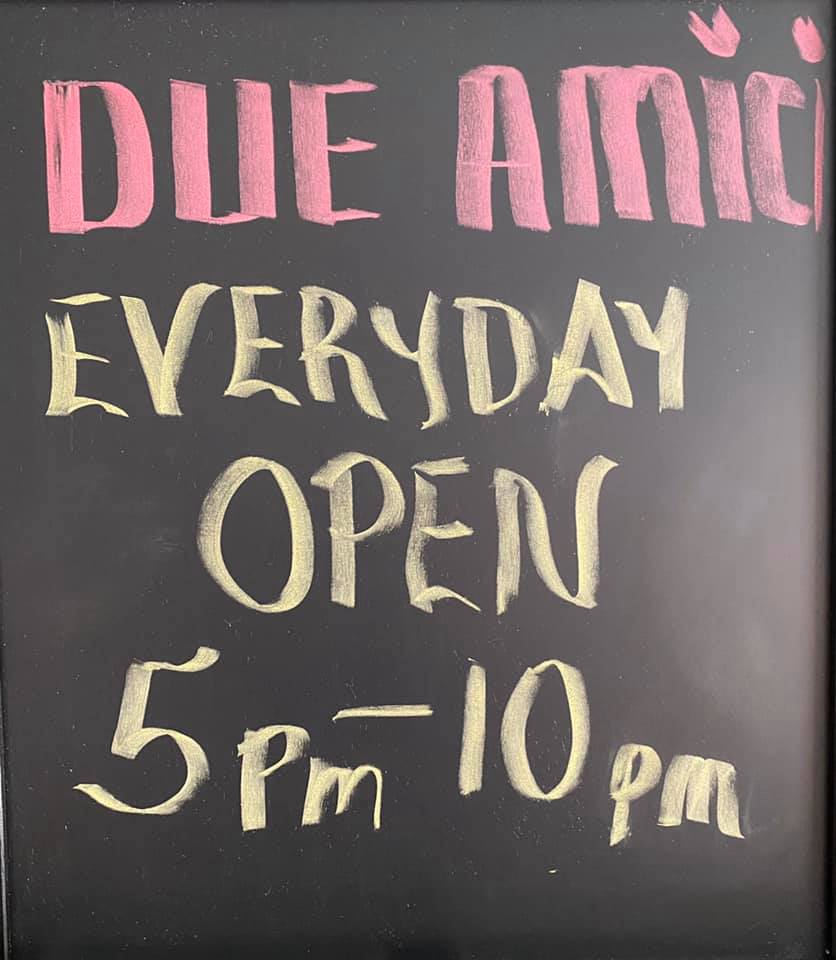 DUE AMiCi
EVERYDAY
OPEN
5 Pm - 10 pm